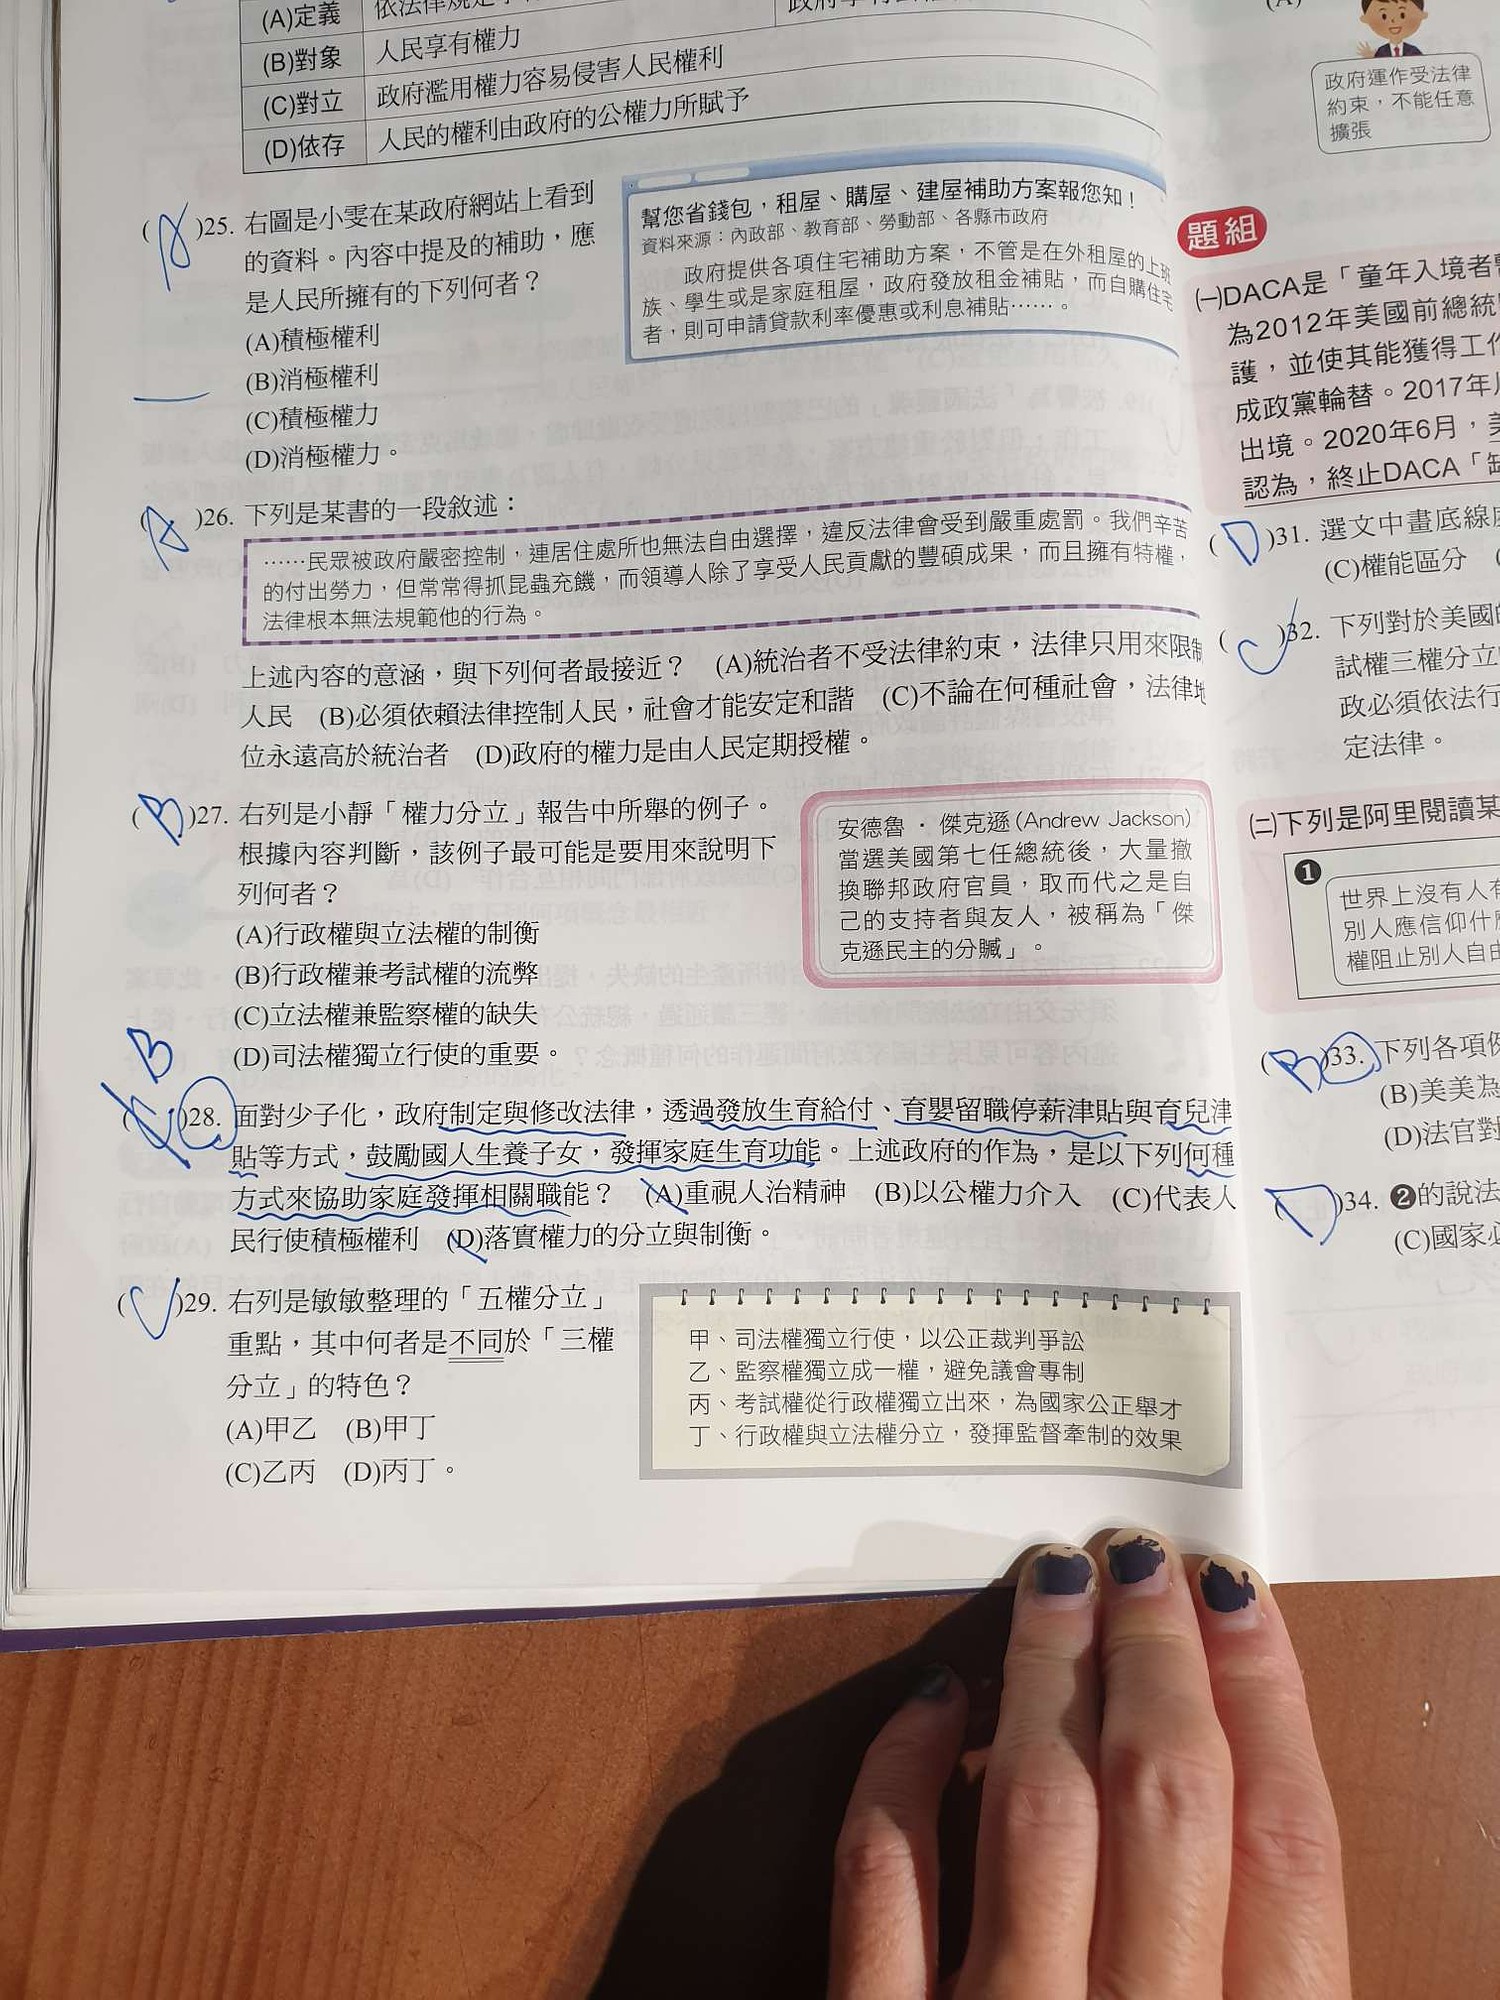 (A)定義
(B)對象 人民享有權力
(C)對立 政府濫用權力容易侵害人民權利
(D)依存 人民的權利由政府的公權力所賦予
(A)25. 右圖是小雯在某政府網站上看到
的資料。內容中提及的補助，應
是人民所擁有的下列何者？
(A)積極權利
(B)消極權利
(C)積極權力
(D)消極權力。
幫您省錢包，租屋、購屋、建屋補助方案報您知！
資料來源：內政部、教育部、勞動部、各縣市政府
政府提供各項住宅補助方案，不管是在外租屋的上班
族、學生或是家庭租屋，政府發放租金補貼，而自購住宅
者，則可申請貸款利率優惠或利息補貼……。
(A)26. 下列是某書的一段敘述：
……民眾被政府嚴密控制，連居住處所也無法自由選擇，違反法律會受到嚴重處罰。我們辛苦
的付出勞力，但常常得抓昆蟲充饑，而領導人除了享受人民貢獻的豐碩成果，而且擁有特權，
法律根本無法規範他的行為。
上述內容的意涵，與下列何者最接近？ (A)統治者不受法律約束，法律只用來限制
人民 (B)必須依賴法律控制人民，社會才能安定和諧 (C)不論在何種社會，法律地
位永遠高於統治者 (D)政府的權力是由人民定期授權。
(B)27. 右列是小靜「權力分立」報告中所舉的例子。
根據內容判斷，該例子最可能是要用來說明下
列何者？
(A)行政權與立法權的制衡
(B)行政權兼考試權的流弊
(C)立法權兼監察權的缺失
(D)司法權獨立行使的重要。
安德魯・傑克遜(Andrew Jackson)
當選美國第七任總統後，大量撤
換聯邦政府官員，取而代之是自
己的支持者與友人，被稱為「傑
克遜民主的分贓」。
B
( )28. 面對少子化，政府制定與修改法律，透過發放生育給付、育嬰留職停薪津貼與育兒津
貼等方式，鼓勵國人生養子女，發揮家庭生育功能。上述政府的作為，是以下列何種
方式來協助家庭發揮相關職能？ (A)重視人治精神 (B)以公權力介入 (C)代表人
民行使積極權利 (D)落實權力的分立與制衡。
(C)29. 右列是敏敏整理的「五權分立」
重點，其中何者是不同於「三權
分立」的特色？
(A)甲乙 (B)甲丁
(C)乙丙 (D)丙丁。
甲、司法權獨立行使，以公正裁判爭訟
乙、監察權獨立成一權，避免議會專制
丙、考試權從行政權獨立出來，為國家公正舉才
丁、行政權與立法權分立，發揮監督牽制的效果
政府運作受法律
約束，不能任意
擴張
題組
㈠DACA是「童年入境者
為2012年美國前總統
護，並使其能獲得工作
成政黨輪替。2017年
出境。2020年6月，
認為，終止DACA「
(D)31. 選文中畫底線
(C)權能區分
(C)32. 下列對於美國
試權三權分立
政必須依法行
定法律。
㈡下列是阿里閱讀某
❶
世界上沒有人有
別人應信仰什
權阻止別人自由
(B)33. 下列各項
(B)美美為
(D)法官對
(D)34. ❷的說法
(C)國家必